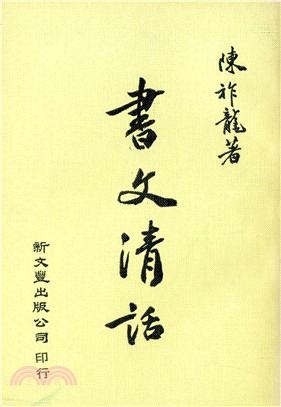 陳祚龍著
書文清話
新文豐出版公司 印行
三民